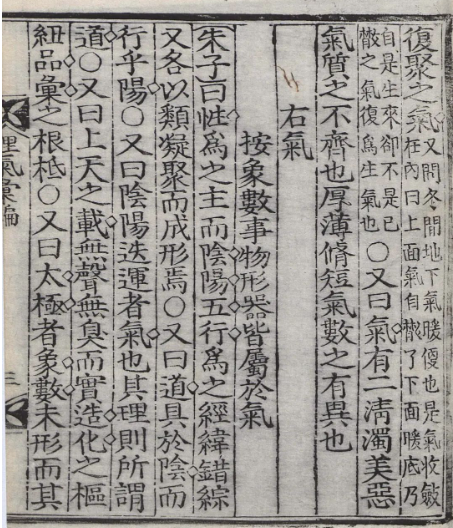 復聚之氣
又問冬間地下氣暖便也是氣收斂
在內曰上面氣自散了下面暖底乃
自是生來卻不是已
散之氣復爲生氣也
○又曰氣有二淸濁美惡
氣質之不齊也厚薄脩短氣數之有異也
右氣
按象數事物形器皆屬於氣
朱子曰性爲之主而陰陽五行爲之經緯錯綜
又各以類凝聚而成形焉○又曰道具於陰而
行乎陽○又曰陰陽迭運者氣也其理則所謂
道○又曰上天之載無聲無臭而實造化之樞
紐品彙之根柢○又曰太極者象數未形而其
理氣彙編
三